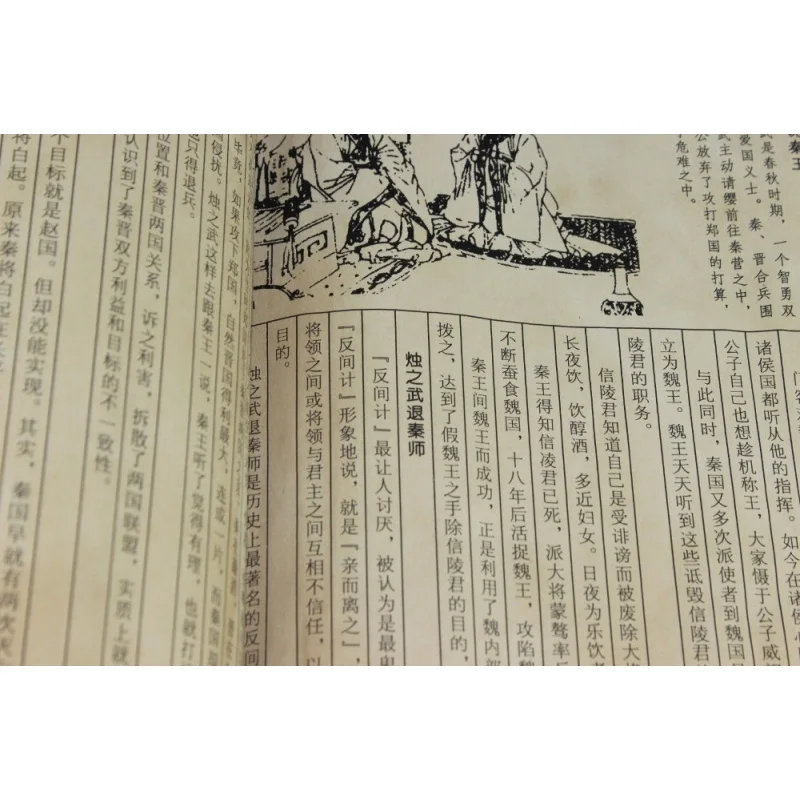 秦王
是春秋时期，一个智勇双
爱国义士。秦、晋合兵围
武主动请缨前往秦营之中，
公放弃了攻打郑国的打算，
危难之中。
诸侯国都听从他的指挥。如今在诸侯
公子自己也想趁机称王，大家慑于公子威
与此同时，秦国又多次派使者到魏国
立为魏王。魏王天天听到这些诋毁信陵君的
陵君的职务。
信陵君知道自己是受诽谤而被废除大
长夜饮，饮醇酒，多近妇女。日夜为乐饮
秦王得知信凌君已死，派大将蒙骜率
不断蚕食魏国，十八年后活捉魏王，攻陷
秦王间魏王而成功，正是利用了魏内部
拨之，达到了假魏王之手除信陵君的目的，
烛之武退秦师
『反间计』最让人讨厌，被认为是最卑
『反间计』形象地说，就是『亲而离之』，
将领之间或将领与君主之间互相不信任，以
目的。
烛之武退秦师是历史上最著名的反间
如果攻下郑国，自然晋国得利最大，连成一片，
侵扰。烛之武这样去跟秦王一说，秦王听了觉得有理，也就打
也只得退兵。
位置和秦晋两国关系，诉之利害，拆散了两国联盟，实质上就
认识到了秦晋双方利益和目标的不一致性。
个目标就是赵国。但却没能实现。其实，秦国早就有两次
将白起。原来秦将白起在